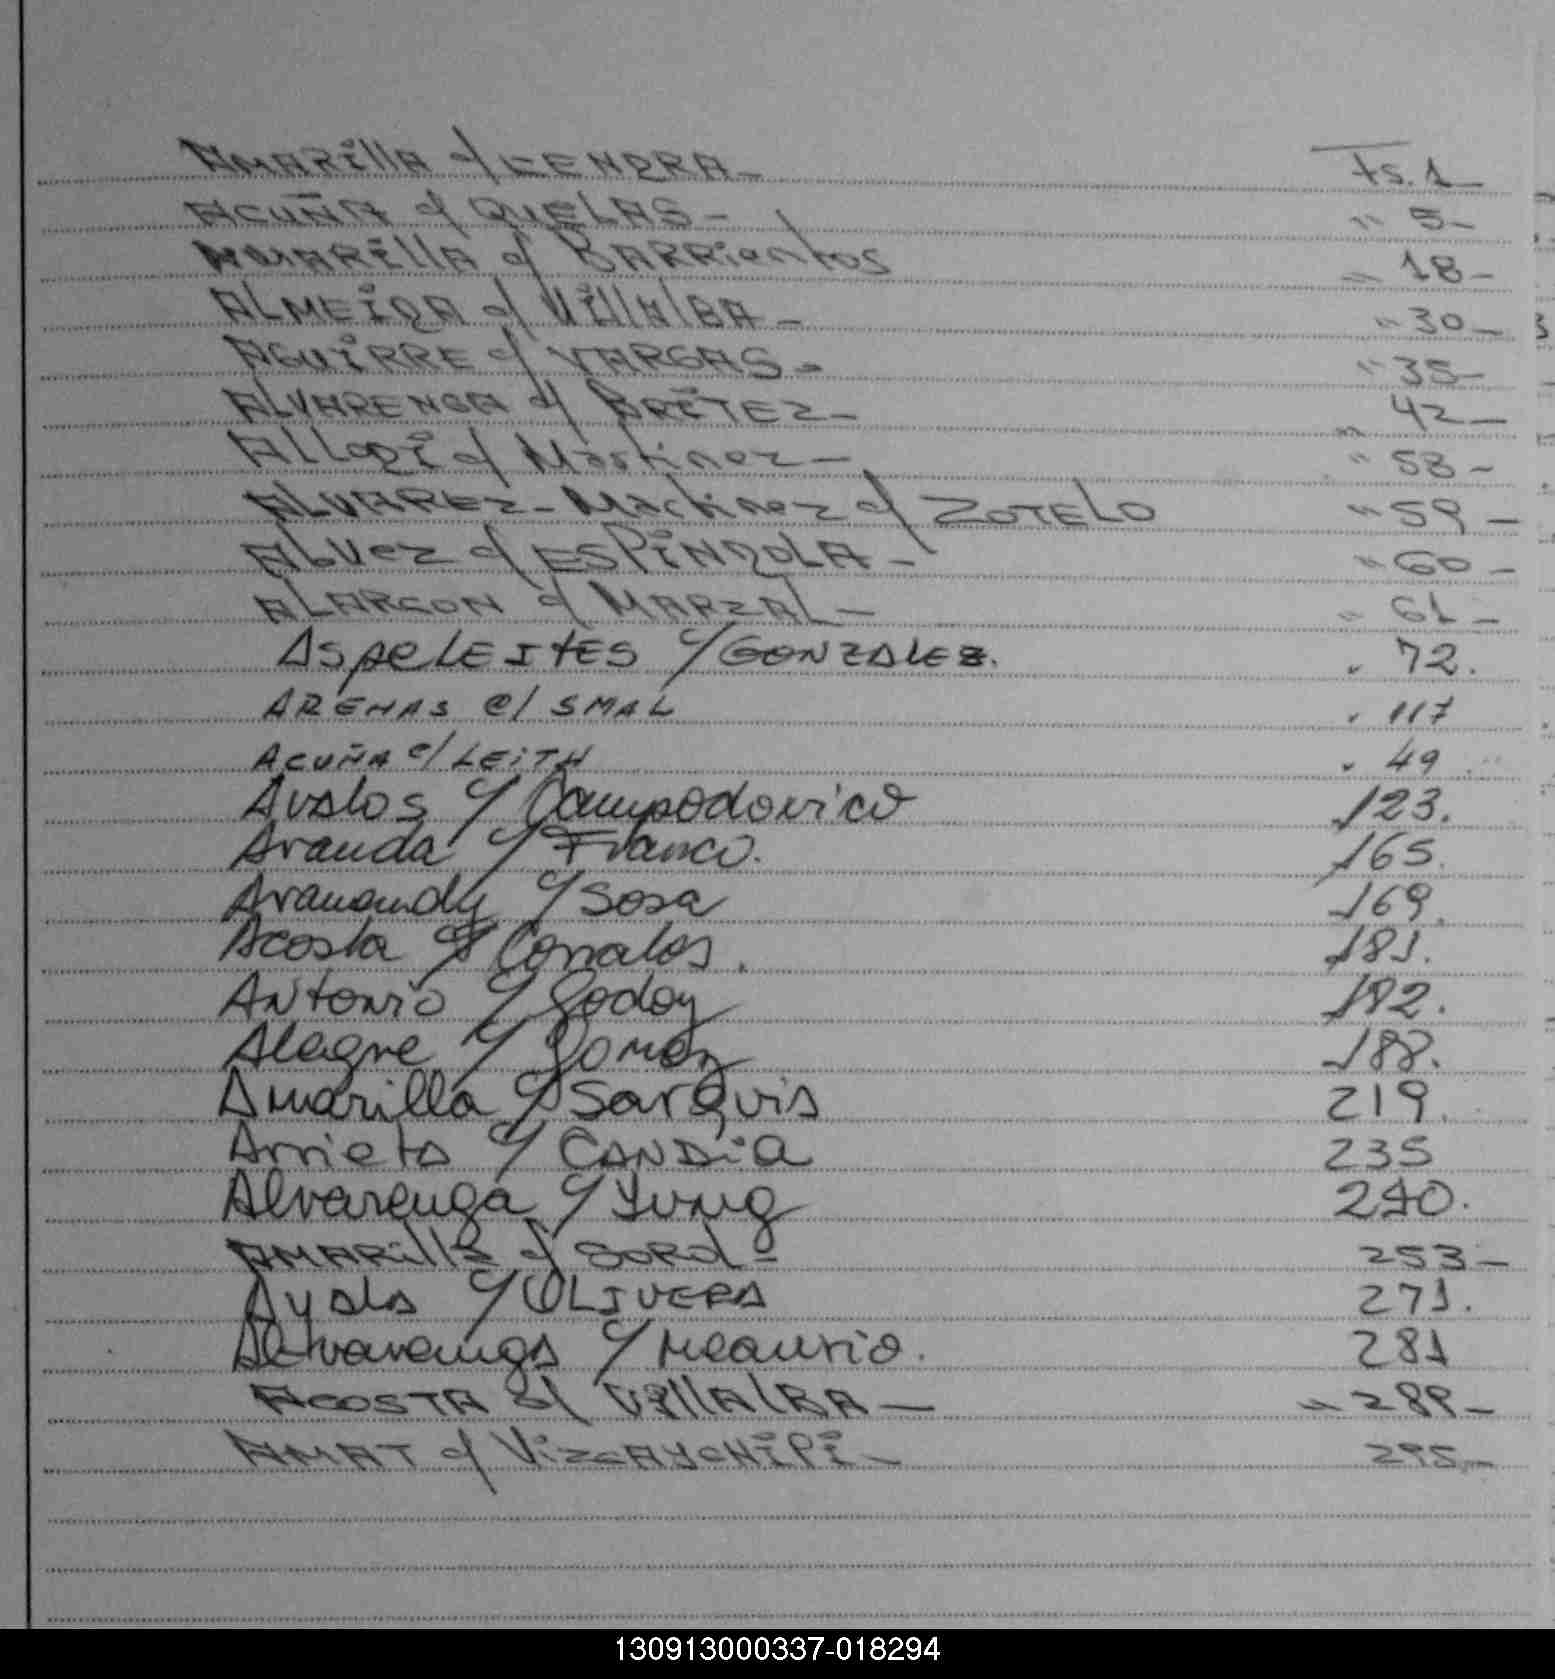 AMARILLA c/ LENDRA - Fs. 1 -
ACUÑA c/ QUELAS - " 5 -
AMARILLA c/ BARRientos " 18 -
ALMEIDA c/ VillAlBA - " 30 -
AGUIRRE c/ VARGAS - " 35 -
ALVARENGA c/ BRITEZ - " 42 -
c/ Martinez - " 58 -
ALVAREZ - Martinez c/ ZOTELO " 59 -
ALVEZ c/ ESPINDOLA - " 60 -
ALARCON c/ MARZAL - " 61 -
ASpeLEITES c/ GONZALEZ. " 72.
ARENAS c/ SMAL " 117
ACUÑA c/ LEITH " 49
Avalos c/ Campodonico 123.
Aranda c/ Franco. 165.
c/ Sosa 169.
Acosta c/ Corrales. 181.
Antonio c/ Godoy 182.
Alegre c/ Gomez 188.
Amarilla c/ Sarquis 219.
Arrieta c/ CANDia 235
Alvarenga c/ Yung 240.
AMARilla c/ SOROL - 253 -
Ayala c/ OLIVERA 271.
Alvarenga c/ Meaurio. 281
ACOSTA c/ VillAlBA - " 289 -
AMAT c/ VizcAycHiPi - 295 -
130913000337-018294